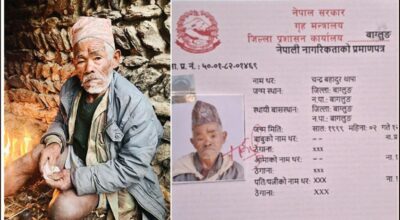 नेपाल सरकार
गृह मन्त्रालय
जिल्ला प्रशासन कार्यालय, बाग्लुङ
नेपाली नागरिकताको प्रमाणपत्र
प्र. नं.: ५०-०१-८२-०१४६९
नाम थर: चन्द्र बहादुर थापा
जन्म स्थान: जिल्ला: बाग्लुङ
न.पा.: बाग्लुङ
स्थायी बासस्थान: जिल्ला: बाग्लुङ
न.पा.: बाग्लुङ
जन्म मिति: साल: १९९९ महिना: ०२ गते
बाबुको नाम थर: xxx
ठेगाना: xxx
आमाको नाम थर: xxx
ठेगाना: xxx
पति/पत्नीको नाम थर: XXX
ठेगाना: XXX